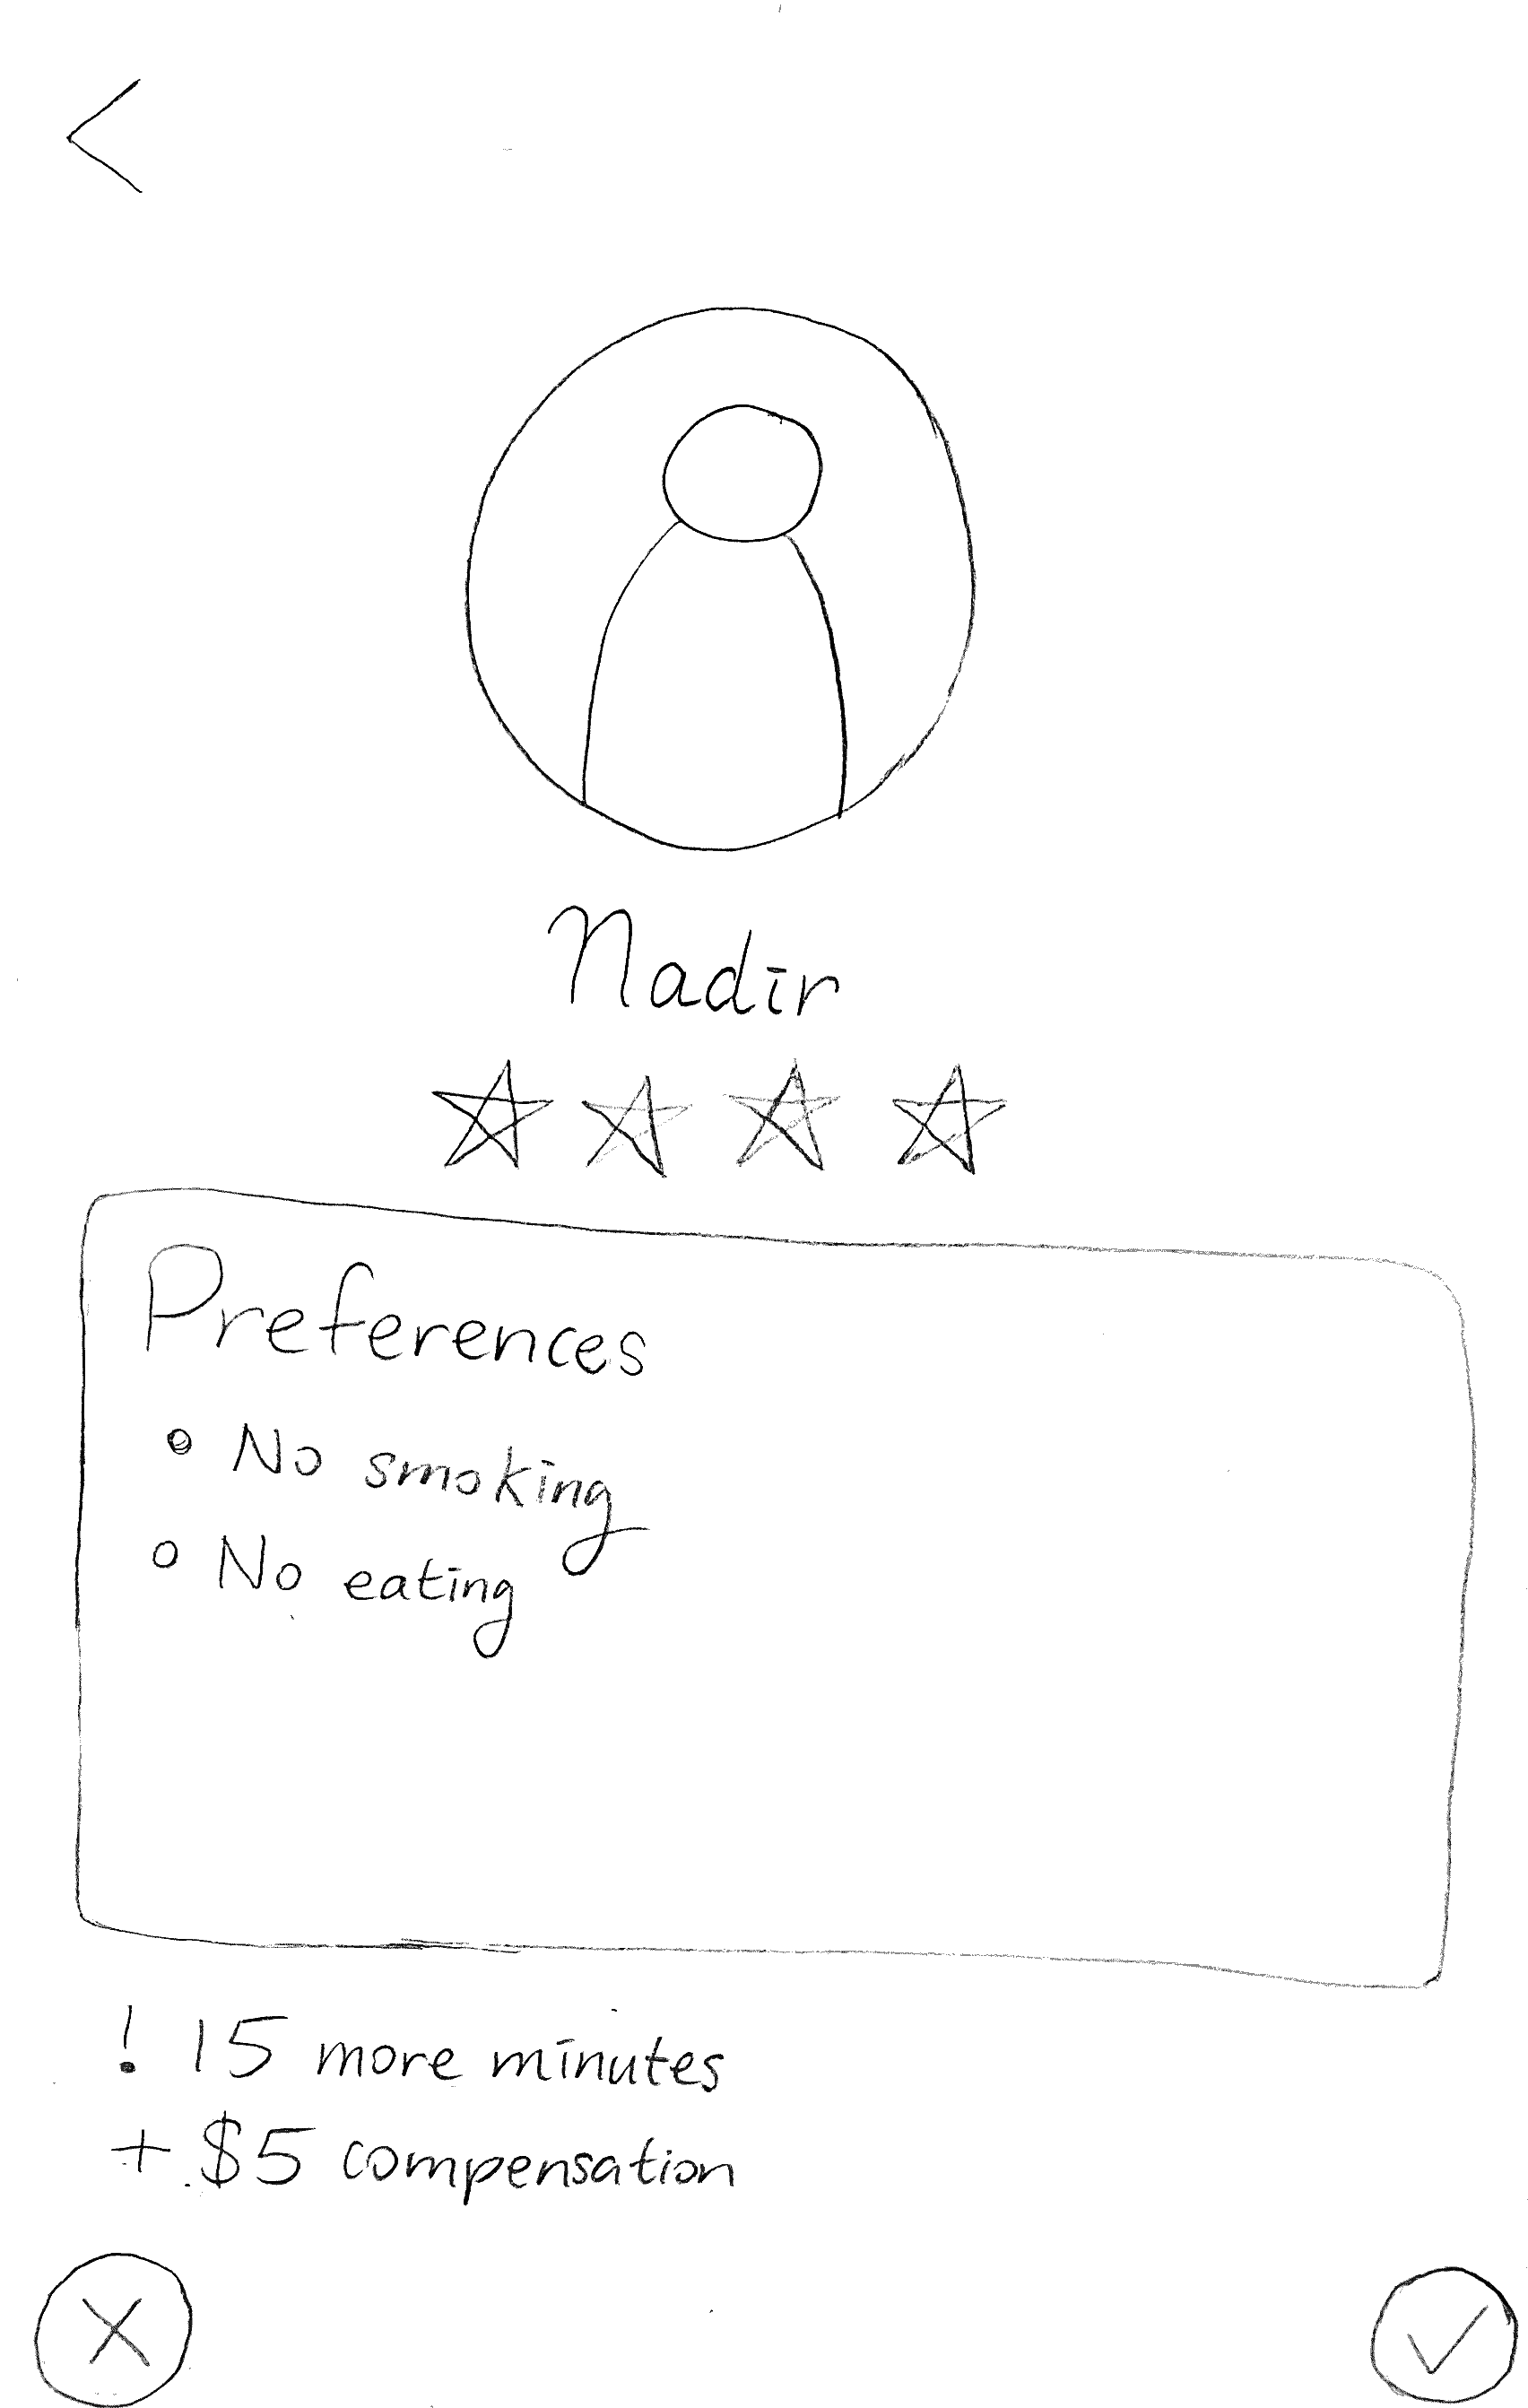 Nadir
Preferences
No smoking
No eating
! 15 more minutes
+ $5 compensation